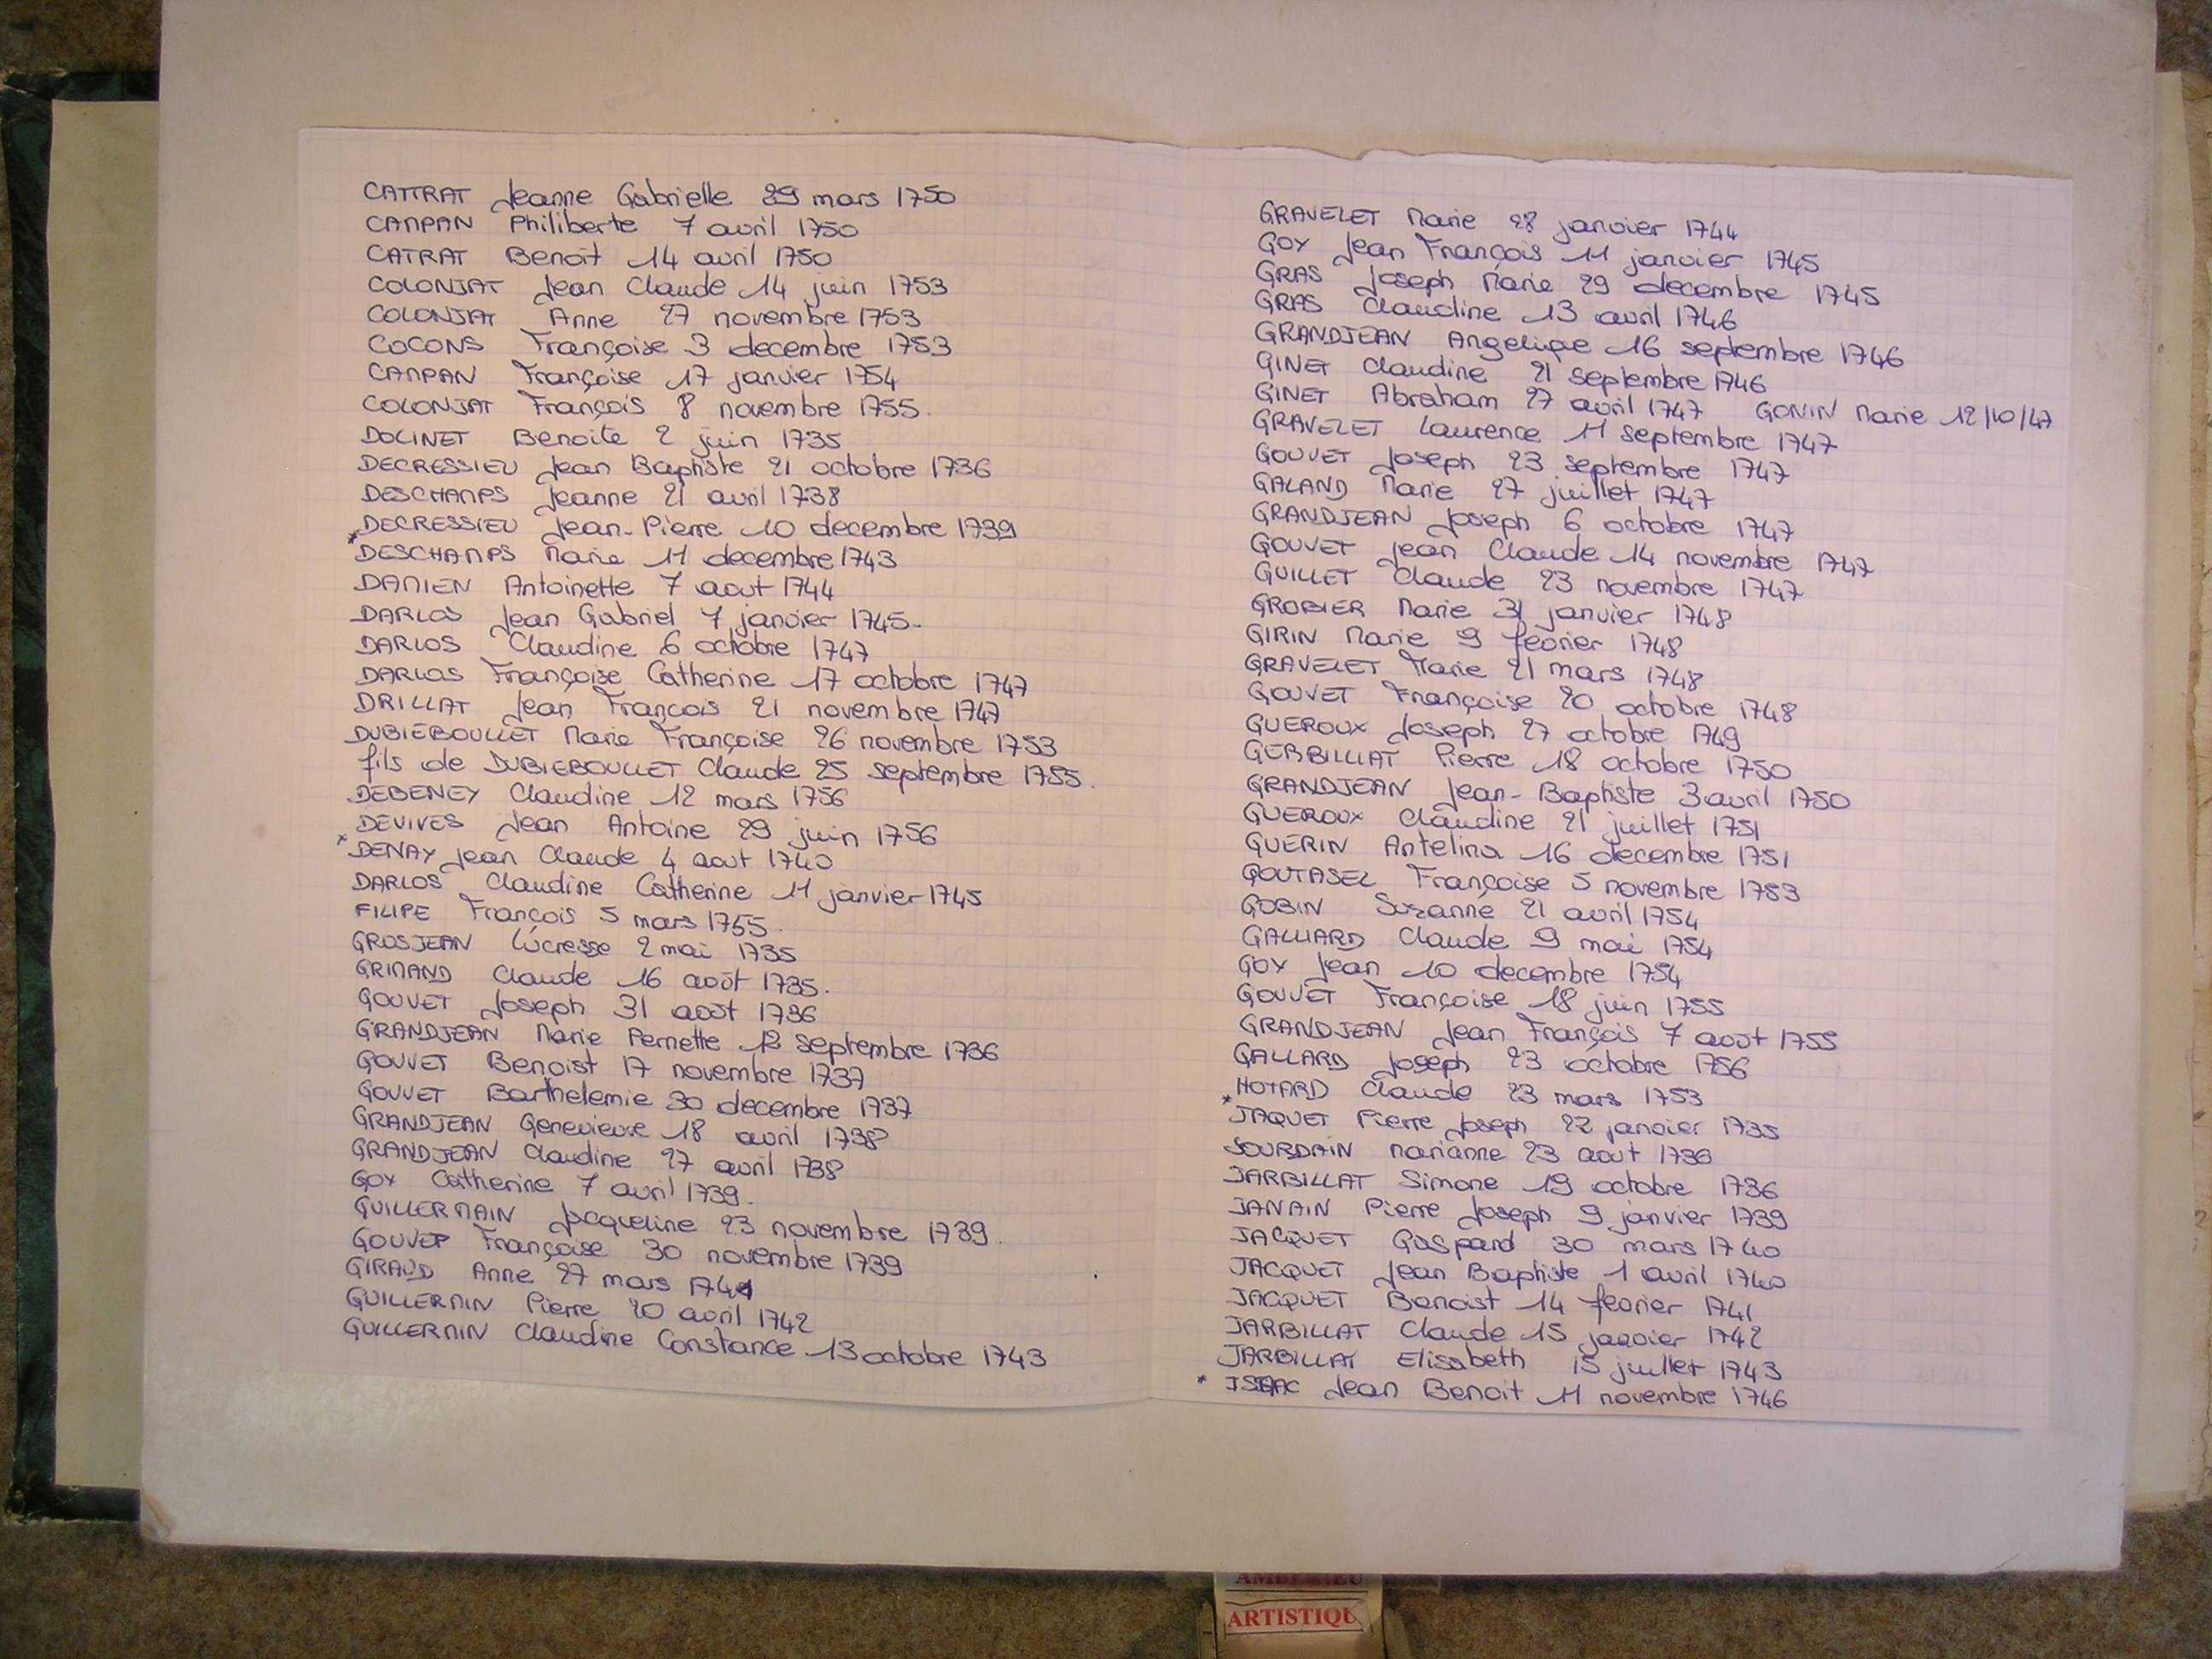 CATTRAT Jeanne Gabrielle 29 mars 1750
CAMPAN Philiberte 7 avril 1750
CATRAT Benoit 14 avril 1750
COLONJAT Jean Claude 14 juin 1753
COLONJAT Anne 27 novembre 1753
COCONS Françoise 3 decembre 1753
CAMPAN Françoise 17 janvier 1754
COLONJAT François 8 novembre 1755.
DOLINET Benoite 2 juin 1735
DECRESSIEU Jean Baptiste 21 octobre 1736
DESCHAMPS Jeanne 21 avril 1738
DECRESSIEU Jean-Pierre 10 decembre 1739
* DESCHAMPS Marie 11 decembre 1743
DAMIEN Antoinette 7 aout 1744
DARLOS Jean Gabriel 7 janvier 1745.
DARLOS Claudine 6 octobre 1747
DARLOS Françoise Catherine 17 octobre 1747
DRILLAT Jean François 21 novembre 1747
DUBIEBOULLET Marie Françoise 26 novembre 1753
fils de DUBIEBOULLET Claude 25 septembre 1755.
DEBENEY Claudine 12 mars 1756
DEVIVES Jean Antoine 29 juin 1756
* DENAY Jean Claude 4 aout 1740
DARLOS Claudine Catherine 11 janvier 1745
FILIPE François 5 mars 1755.
GROSJEAN Lucresse 2 mai 1735
GRIMAND Claude 16 août 1735.
GOUVET Joseph 31 août 1736
GRANDJEAN Marie Pernette 12 septembre 1736
GOUVET Benoist 17 novembre 1737
GOUVET Barthelemie 30 decembre 1737
GRANDJEAN Genevieve 18 avril 1738
GRANDJEAN Claudine 27 avril 1738
GOY Catherine 7 avril 1739.
GUILLERMAIN Jacqueline 23 novembre 1739.
GOUVET Françoise 30 novembre 1739
GIRAUD Anne 27 mars 1741
GUILLERMIN Pierre 20 avril 1742
GUILLERMIN Claudine Constance 13 octobre 1743
GRAVELET Marie 28 janvier 1744
GOY Jean François 11 janvier 1745
GRAS Joseph Marie 29 decembre 1745
GRAS Claudine 13 avril 1746
GRANDJEAN Angelique 16 septembre 1746
GINET Claudine 21 septembre 1746
GINET Abraham 27 avril 1747 GONIN Marie 12/10/47
GRAVELET Laurence 11 septembre 1747
GOUVET Joseph 23 septembre 1747
GALAND Marie 27 juillet 1747
GRANDJEAN Joseph 6 octobre 1747
GOUVET Jean Claude 14 novembre 1747
GUILLET Claude 23 novembre 1747
GROBIER Marie 31 janvier 1748
GIRIN Marie 9 fevrier 1748
GRAVELET Marie 21 mars 1748
GOUVET Françoise 20 octobre 1748
GUEROUX Joseph 27 octobre 1749
GERBILLIAT Pierre 18 octobre 1750
GRANDJEAN Jean-Baptiste 3 avril 1750
GUEROUX Claudine 21 juillet 1751
GUERIN Antelina 16 decembre 1751
GOUTASEL Françoise 5 novembre 1753
GOBIN Suzanne 21 avril 1754
GALLIARD Claude 9 mai 1754
GOY Jean 10 decembre 1754
GOUVET Françoise 18 juin 1755
GRANDJEAN Jean François 7 août 1755
GALLARD Joseph 23 octobre 1756
HOTARD Claude 23 mars 1753
* JAQUET Pierre Joseph 22 janvier 1735
JOURDAIN Marianne 23 aout 1736
JARBILLAT Simone 19 octobre 1736
JANAIN Pierre Joseph 9 janvier 1739
JACQUET Gaspard 30 mars 1740
JACQUET Jean Baptiste 1 avril 1740
JACQUET Benoist 14 fevrier 1741
JARBILLAT Claude 15 janvier 1742
JARBILLAT Elisabeth 15 juillet 1743
* ISAAC Jean Benoit 11 novembre 1746
ARTISTIQU